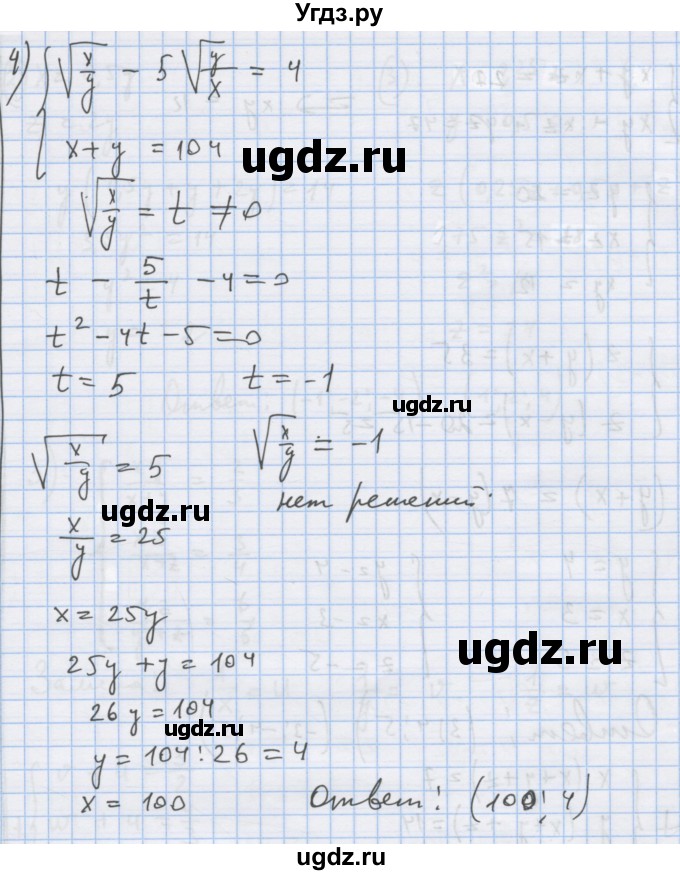 Угдз.ру
4) { √(x/y) - 5 √(y/x) = 4
x + y = 104
ugdz.ru
√(x/y) = t ≠ 0
t - 5/t - 4 = 0
t² - 4t - 5 = 0
t = 5 t = -1
ugdz.ru
√(x/y) = 5 √(x/y) = -1
нет решений.
ugdz.ru
x/y = 25
x = 25y
ugdz.ru
25y + y = 104
26y = 104
ugdz.ru
y = 104 : 26 = 4
x = 100 Ответ: (100; 4)
ugdz.ru